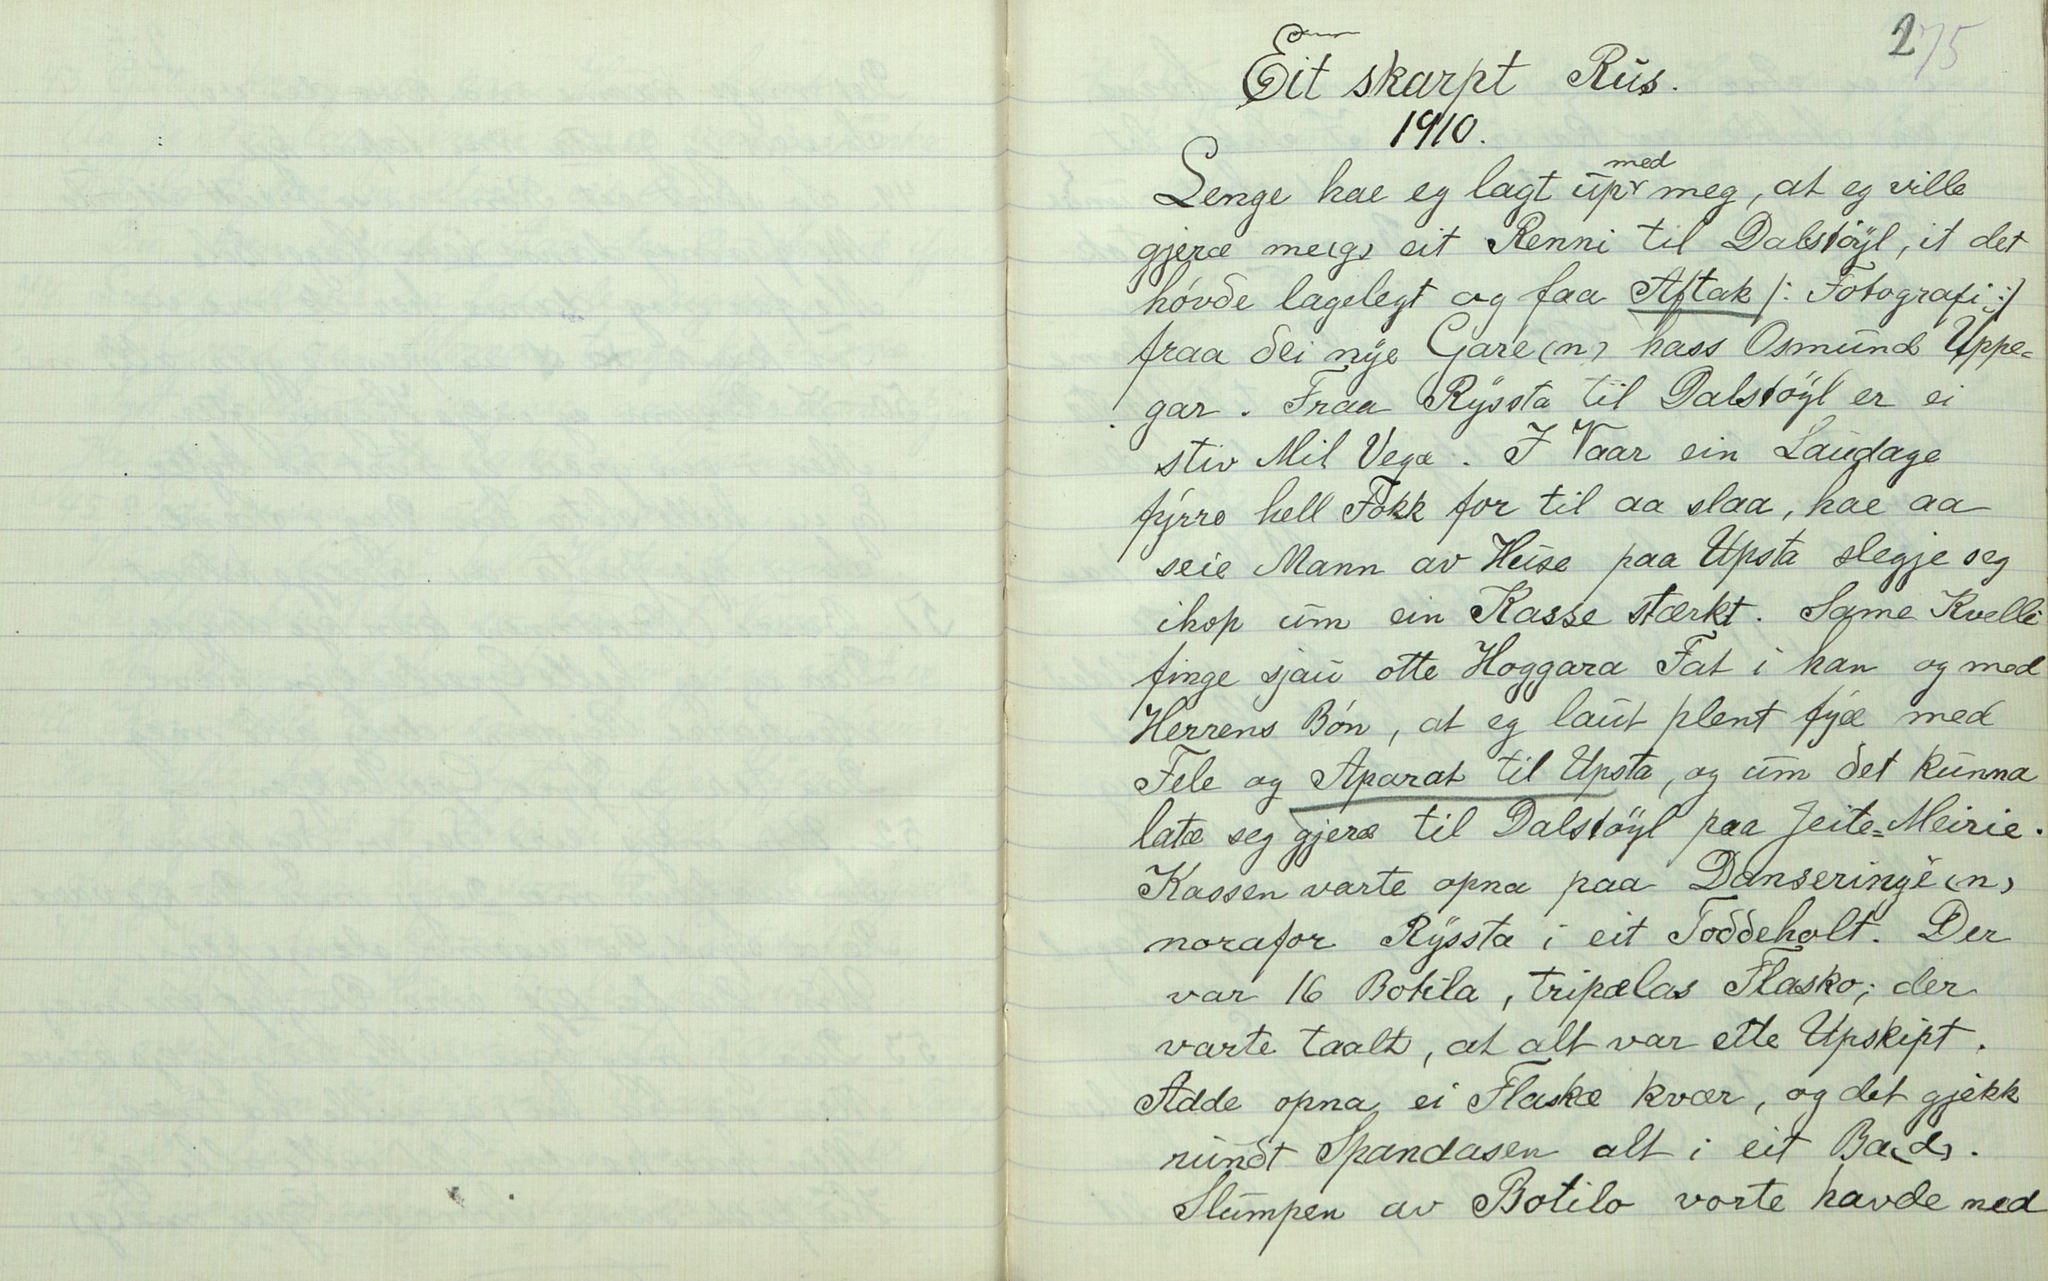 275
Eit skarpt Rus.
1910.
Lenge hae eg lagt up med meg, at eg ville
gjeræ me(g) eit Renni til Dalsføyl, it det
hóvde lagelegt og faa Aftak /: Fotografi :/
fraa dei nye Gare(n) hass Osmund Uppe=
gar. Fraa Ryssta til Dalsføyl er ei
stiv Mil Vegæ. I Vaar ein Laudage
fyrre hell Fokk for til aa slaa, hae aa
seie Mann av Huse paa Upsta slegje seg
ihop um ein Kasse stærkt. Same Kvelli
finge sjau otte Hoggara Fat i han og med
Herrens Bón, at eg laut plent fýæ med
Fele og Aparat til Upsta, og um det kunna
latæ seg gjeræ til Dalsføyl paa Jeite=Meirie.
Kassen varte opna paa Danseringje(n)
norafor Ryssta i eit Toddeholt. Der
var 16 Botila, tripælas Flasko; der
varte taalt, at alt var ette Upskipt.
Adde opna ei Flaskæ kvær, og det gjekk
rundt Spandasen alt i eit Ba(d).
Slumpen av Botilo vorte havde ned